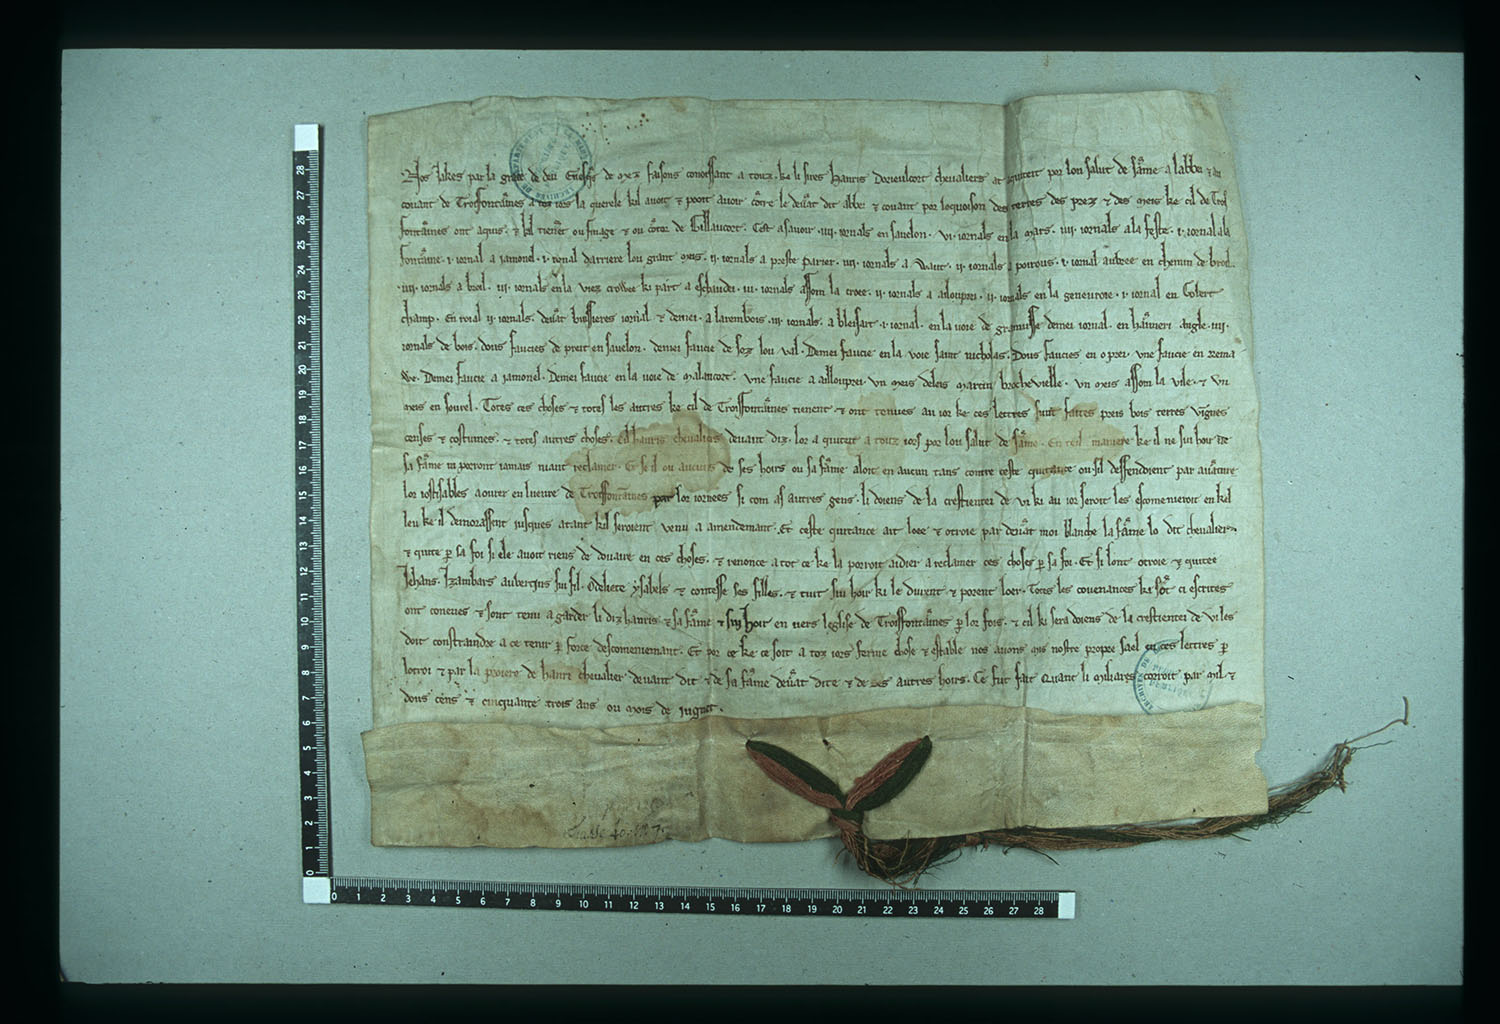 Nos Jakes par la grace de deu Evesq̄s de mez faisons conoissant a touz. ke li sires Hanris Dorieulcort chevaliers at aquiteit por lou salut de sāme a labbe & au
covant de Troisfontānes a toz iors la querele kil avoit & pooit avoir cōtre le devāt dit abbei & covant por loquoison des terres des prez & des meis ke cil de Trois
fontānes ont aquis. & kil tienēt ou finage & ou cōtor de Billaucort. Cest asavoir .iiii. iornals en savelon. vi. iornals en la mars. iiii. iornals a la feste. i. iornal a la
fontāne. i. iornal a iamonel. i. iornal darriere lou grant meis. ii. iornals a preste parier. iiii. iornals a Waut. ii. iornals a poirous. i. iornal aubree en chemin de broil.
.iiii. iornals a broil. iii. iornals en la viez crowee ki part a eschaudei. iii. iornals assom la croee. ii. iornals a ailouprei. ii. iornals en la genevroie. i. iornal en Colert
champ. En roial ii. iornals. devāt buissieres iornal & demei. a larembois. iii. iornals. a bleifart. i. iornal. en la voie de gremisse demei iornal. en hāmeri angle. iiii.
iornals de bois. dous faucies de preit en savelon. demei faucie de soz lou val. Demei faucie en la voie saint nicholas. Dous faucies en o prei. vne faucie en Rema
we. Demei faucie a iamonel. Demei faucie en la voie de malancort. vne faucie a aillouprei. vn meis deleis martin brochevielle. vn meis assom la vile. & vn
meis en sourel. Totes ces choses & totes les autres ke cil de Troisfontānes tienent & ont tenues au ior ke ces lettres sunt faites preis bois terres vignes
censes & costumes. & totes autres choses. Cil hanris chevaliers devant diz. lor a quiteit a touz iors por lou salut de sāme. En teil maniere ke il ne sui hoir ne
sa fāme ni porront iamais niant reclamer. Et se il ou aucuns de ses hoirs ou sa fāme aloit en aucun tans contre ceste quitance ou sil deffendoient par avāture
lor iostisables a ovrer en luevre de Troisfontānes par lor iornees si com as autres gens. li doiens de la crestientei de vi ki au ior seroit les escomenieroit en kel
leu ke il demorassent iusques atant kil seroient venu a amendemant. Et ceste quitance ait loee & otroie par devāt moi blanche la fāme lo dit chevalier.
& quite p̄ sa foi si ele avoit riens de douaire en ces choses. & renonce a tot ce ke la porroit aidier a reclamer ces choses p̄ sa foi. Et si lont otroie & quitee
Jehans. Izambars aubertins sui fil. Odeliete ysabels & contesse ses filles. & tuit sui hoir ki le durent & porent loer. Totes les covenances ki sōt ci escrites
ont coneues & sont tenu a garder li diz hanris & sa fāme & sui hoir en vers leglise de Troisfontānes p̄ lor fois. & cil ki sera doiens de la crestientei de vi les
doit constraindre a ce tenir p̄ force descomeniemant. Et por ce ke ce soit a toz iors ferme chose & estable nos avons mis nostre propre sael en ces lettres p̄
lotroi & par la proiere de hanri chevalier devant dit & de sa fāme devāt dite & de ses autres hoirs. Ce fut fait Quant li miliaires corroit par mil &
dous cens & cinquante trois ans ou mois de iugnet.